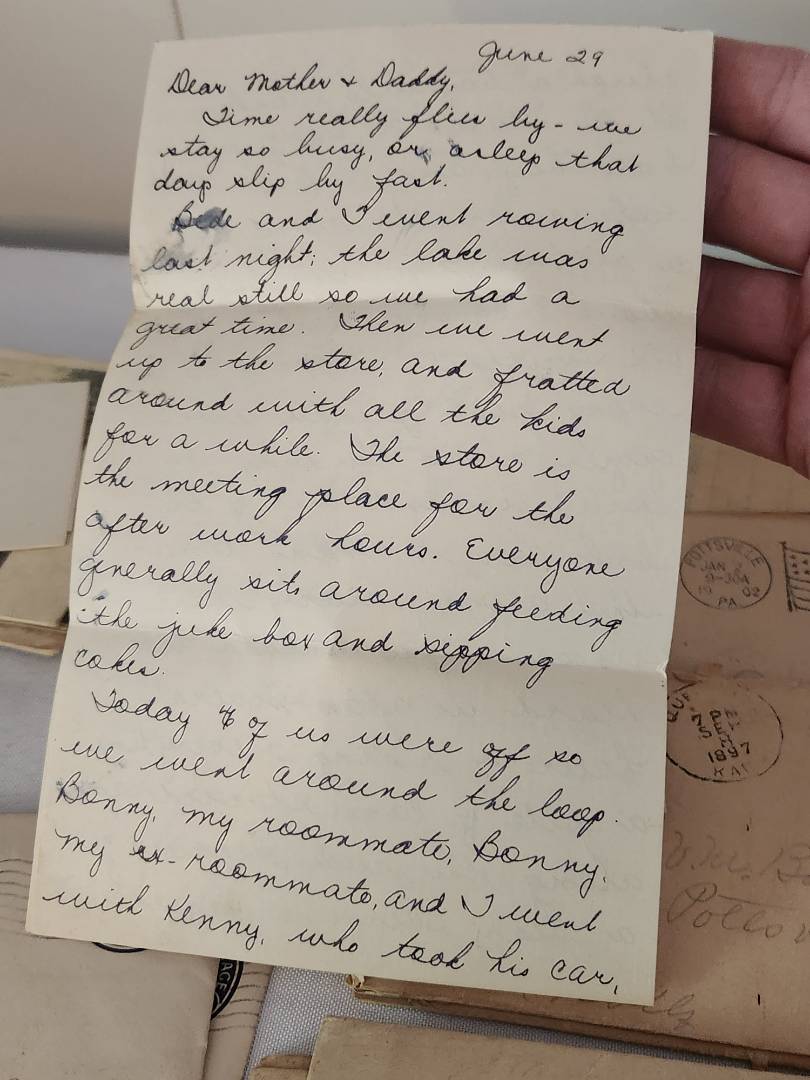 June 29
Dear Mother & Daddy,
Time really flies by - we
stay so busy, or asleep that
days slip by fast.
Bede and I went rowing
last night; the lake was
real still so we had a
great time. Then we went
up to the store, and fratted
around with all the kids
for a while. The store is
the meeting place for the
after work hours. Everyone
generally sits around feeding
the juke box and sipping
cokes.
Today of us were off so
we went around the loop.
Bonny, my roommate, Bonny,
my ex-roommate, and I went
with Kenny, who took his car,
POTTSVILLE
JAN
9-30A
PA
1897
KAN
Mrs.
AGE